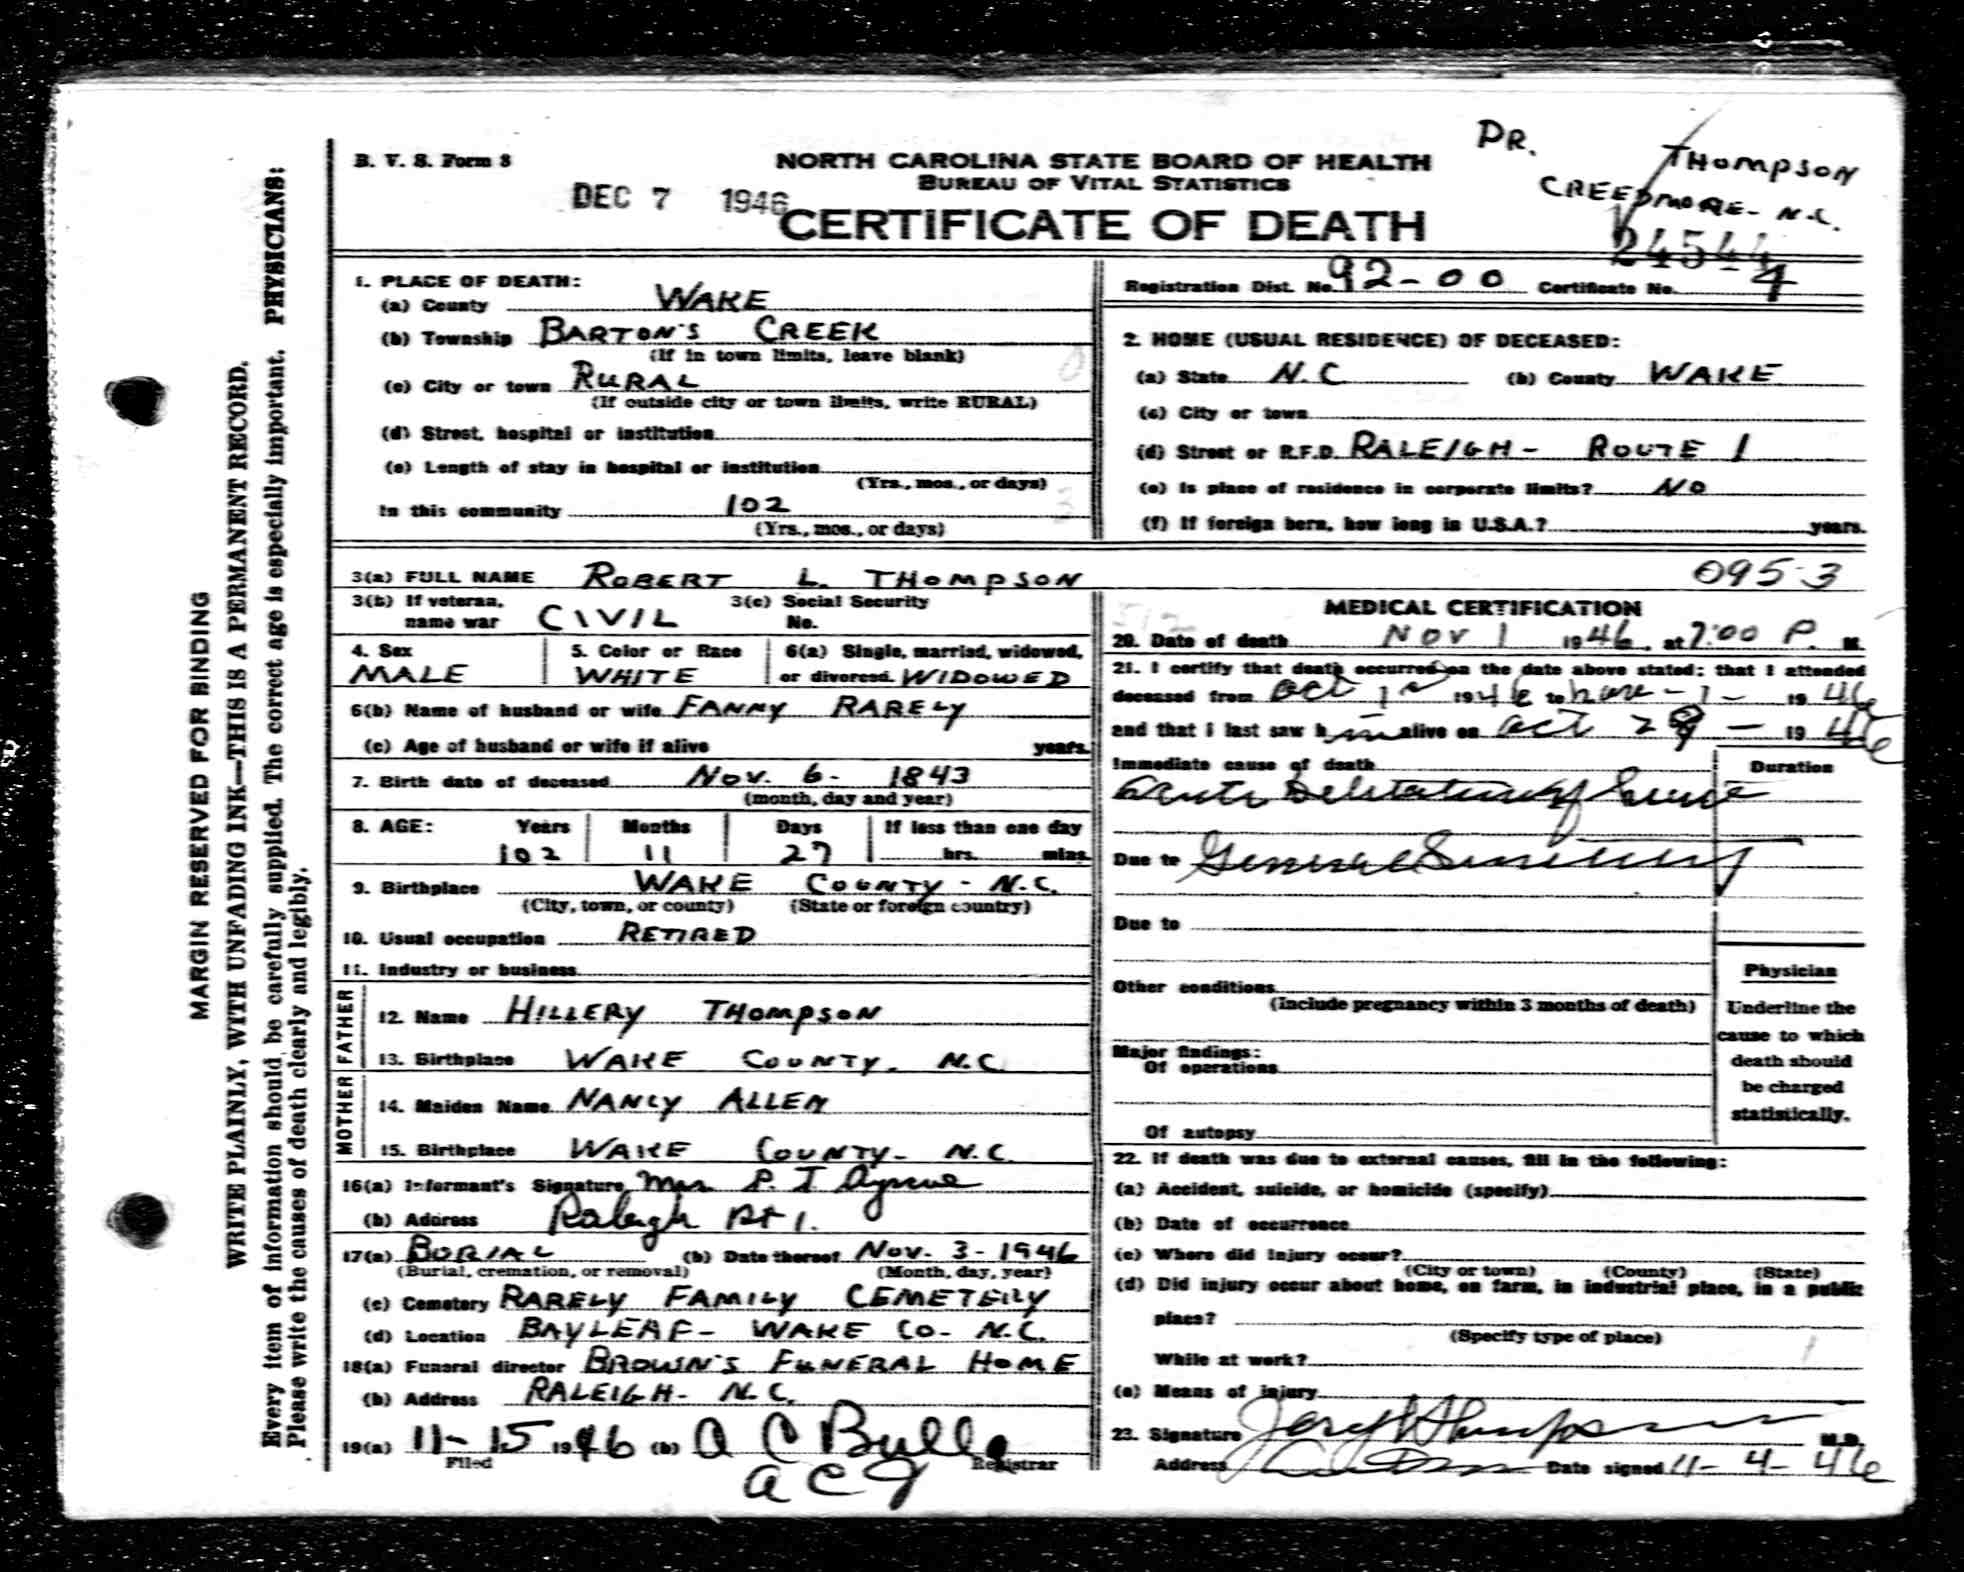 B. V. S. Form 8
NORTH CAROLINA STATE BOARD OF HEALTH
BUREAU OF VITAL STATISTICS
DEC 7 1946
CERTIFICATE OF DEATH
DR. THOMPSON
CREEDMORE- N.C.
24544
MARGIN RESERVED FOR BINDING
WRITE PLAINLY, WITH UNFADING INK—THIS IS A PERMANENT RECORD.
Every item of information should be carefully supplied. The correct age is especially important. PHYSICIANS:
Please write the causes of death clearly and legibly.
1. PLACE OF DEATH:
(a) County WAKE
(b) Township BARTON'S CREEK
(If in town limits, leave blank)
(c) City or town RURAL
(If outside city or town limits, write RURAL)
(d) Street, hospital or institution
(e) Length of stay in hospital or institution
(Yrs., mos., or days)
In this community 102
(Yrs., mos., or days)
Registration Dist. No. 92-00 Certificate No. 4
2. HOME (USUAL RESIDENCE) OF DECEASED:
(a) State N.C (b) County WAKE
(c) City or town
(d) Street or R.F.D. RALEIGH- ROUTE 1
(e) Is place of residence in corporate limits? NO
(f) If foreign born, how long in U.S.A.? years.
3(a) FULL NAME ROBERT L. THOMPSON
0953
3(b) If veteran, name war CIVIL 3(c) Social Security No.
4. Sex MALE
5. Color or Race WHITE
6(a) Single, married, widowed, or divorced. WIDOWED
6(b) Name of husband or wife FANNY RARELY
(c) Age of husband or wife if alive years.
7. Birth date of deceased NOV. 6- 1843
(month, day and year)
8. AGE: Years Months Days If less than one day
102 11 27 hrs. mins.
9. Birthplace WAKE COUNTY- N.C.
(City, town, or county) (State or foreign country)
10. Usual occupation RETIRED
11. Industry or business
FATHER
12. Name HILLERY THOMPSON
13. Birthplace WAKE COUNTY. N.C
MOTHER
14. Maiden Name NANCY ALLEN
15. Birthplace WAKE COUNTY- N.C.
16(a) Informant's Signature Mrs P. T
(b) Address Raleigh Rt 1.
17(a) BURIAL (b) Date thereof NOV. 3-1946
(Burial, cremation, or removal) (Month, day, year)
(c) Cemetery RARELY FAMILY CEMETERY
(d) Location BAYLEAF- WAKE CO- N.C.
18(a) Funeral director BROWN'S FUNERAL HOME
(b) Address RALEIGH- N.C.
19(a) 11-15 1946 (b) A C Bulla
Filed Registrar
MEDICAL CERTIFICATION
20. Date of death NOV 1 1946, at 7:00 P. M.
21. I certify that death occurred on the date above stated; that I attended
deceased from Oct 1 1946 to Nov-1- 1946
and that I last saw him alive on Oct 1946
Immediate cause of death Duration
Acute
Due to General
Due to
Other conditions
(Include pregnancy within 3 months of death)
Major findings:
Of operations
Of autopsy
Physician
Underline the
cause to which
death should
be charged
statistically.
22. If death was due to external causes, fill in the following:
(a) Accident, suicide, or homicide (specify)
(b) Date of occurrence
(c) Where did injury occur?
(City or town) (County) (State)
(d) Did injury occur about home, on farm, in industrial place, in a public
place?
(Specify type of place)
While at work?
(e) Means of injury
23. Signature Thompson M.D.
Address Date signed 11-4-46